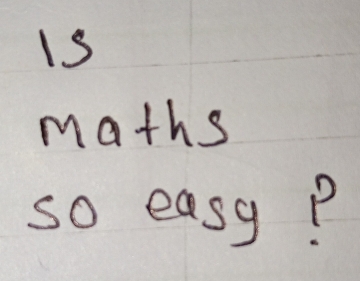 Is
maths
so easy ?